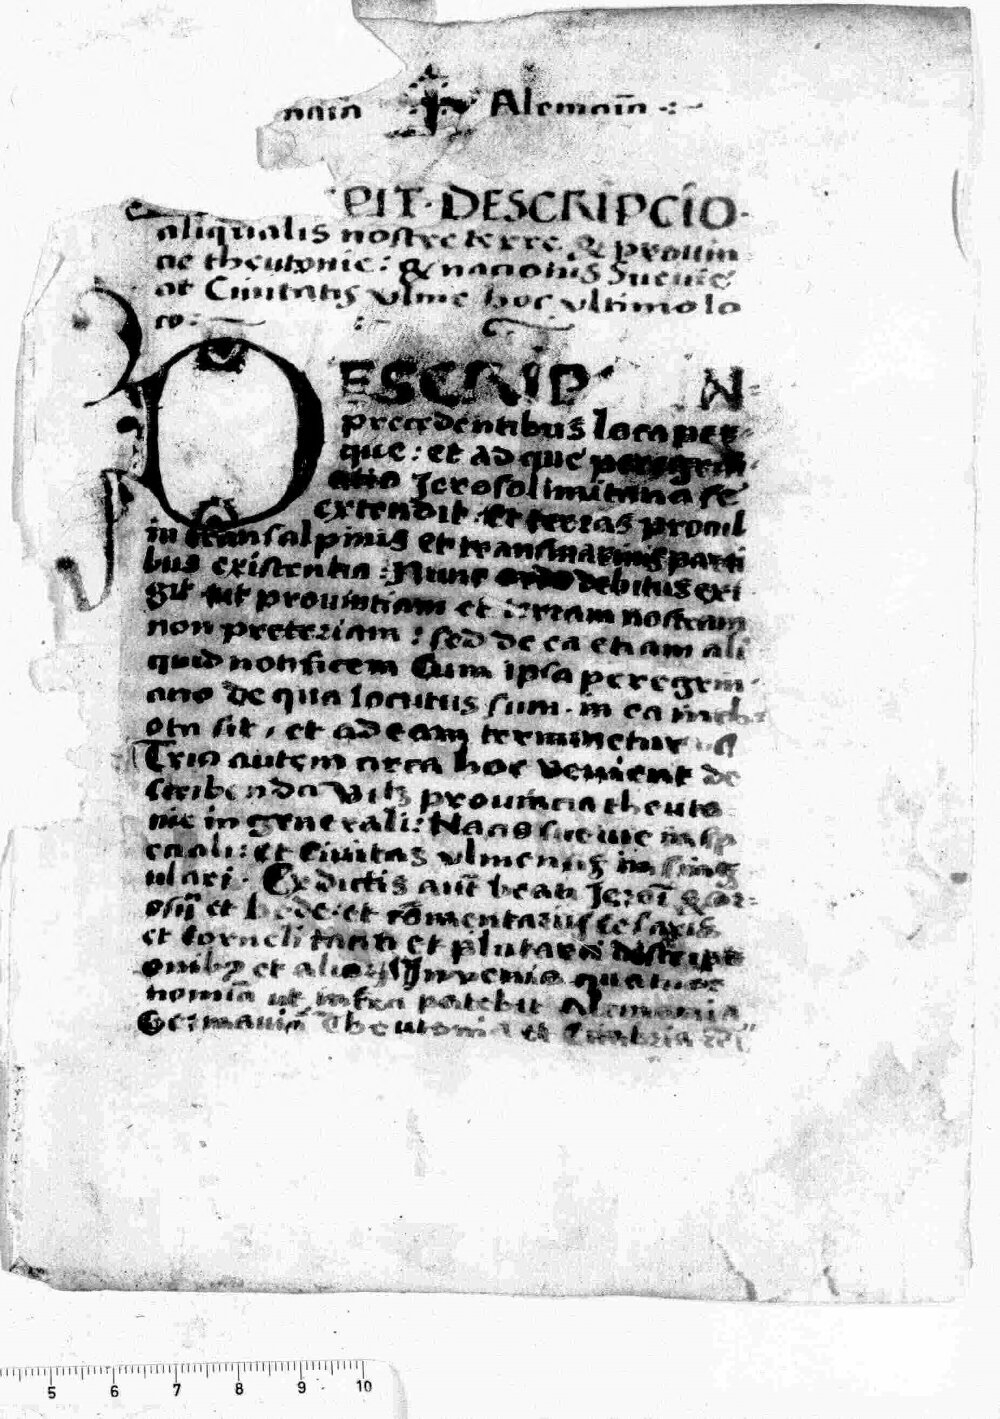 Alemaīa
PIT · DESCRIPCIO ·
aliqualis nostre terre & prouin
cie theutonie : & nacionis Sueuie
ac Ciuitatis vlme hoc vltimo lo
co :
DESCRIP N
precedentibus loca per
que : et ad que peregrin
atio Jerosolimitana se
extendit · et terras procul
in transalpinis et transmarinis parti
bus existentia : Nunc ordo debitus exi
git ut prouintiam et terram nostram
non preteriam : sed de ea etiam ali
quid notificem Cum ipsa peregrin
acio de qua locutus sum · in ea inch
oata sit , et ad eam terminetur
Tria autem circa hoc venient de
scribenda Vilꝫ prouincia theuto
nie in generali : Nacio sueuie in sp
eciali : et Ciuitas vlmensis in sing
ulari · Ex dictis aūt beati Jeroī & or
osij et bede · et cōmentarijs cesaris
et Cornelij taciti et plutarci descript
onibꝫ et alioꝝ Invenio quatuor
nomīa ut infra patebit Alemania
Germania Theutonia et Cimbria
5 6 7 8 9 10